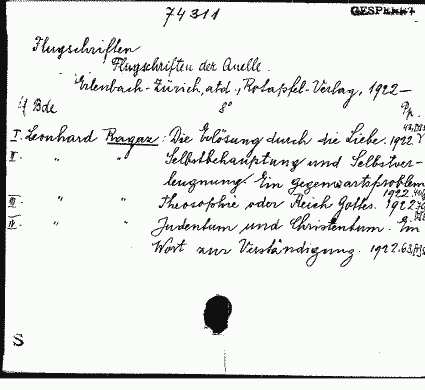 74311
GESPERRT
Flugschriften
Flugschriften der Quelle.
Erlenbach-Zürich, etc., Rotapfel-Verlag, 1922—
4 Bde 8°
I. Leonhard Ragaz: Die Erlösung durch die Liebe. 1922
II. " " Selbstbehauptung und Selbstver-
leugnung. Ein Gegenwartsproblem
1922
III. " " Theosophie oder Reich Gottes. 1922
IV. " " Judentum und Christentum. Ein
Wort zur Verständigung. 1922. 63
S